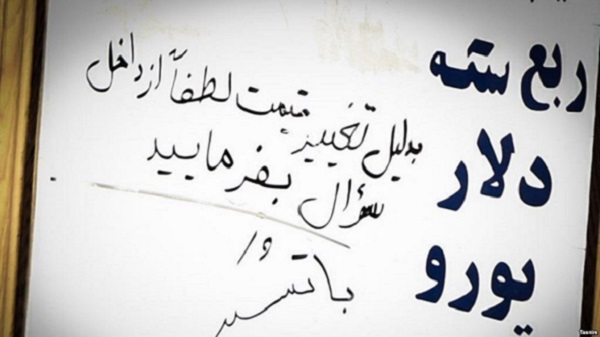 ربع سکه
دلار
یورو
بدلیل تغییر قیمت لطفاً از داخل
سؤال بفرمایید
با تشکر